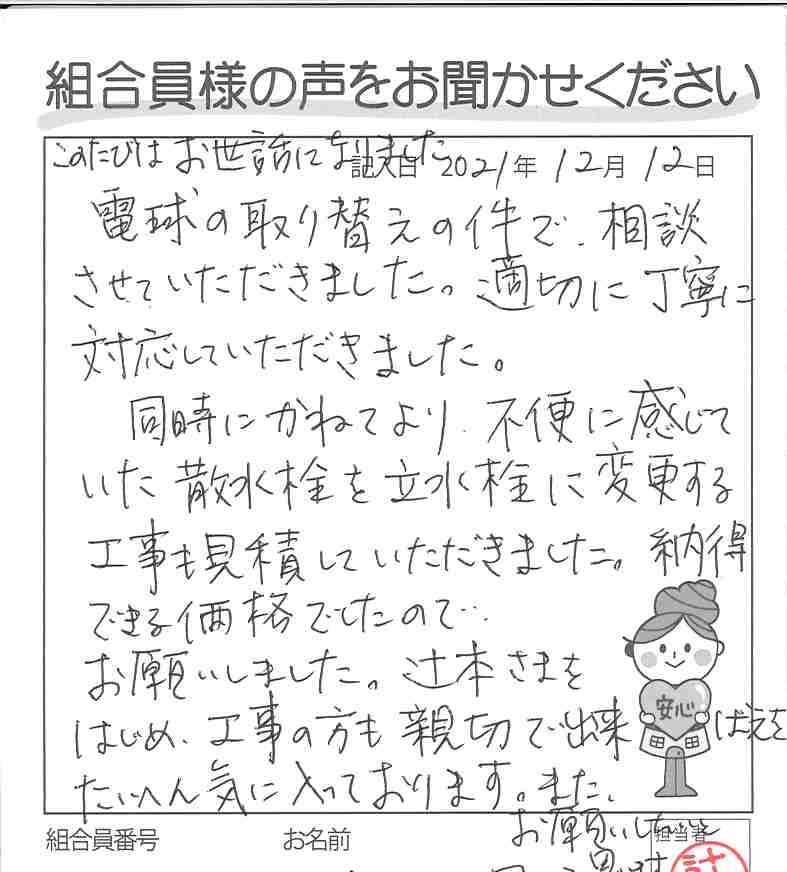 組合員様の声をお聞かせください
このたびは お世話になりました
記入日 2021年 12月 12日
電球の取り替えの件で、相談
させていただきました。適切に丁寧に
対応していただきました。
同時にかねてより、不便に感じて
いた散水栓を立水栓に変更する
工事も見積していただきました。納得
できる価格でしたので‥
お願いしました。辻本さまを
はじめ、工事の方も親切で出来ばえを
たいへん気に入っております。また、
お願いしたいと
安心
組合員番号 お名前 担当者